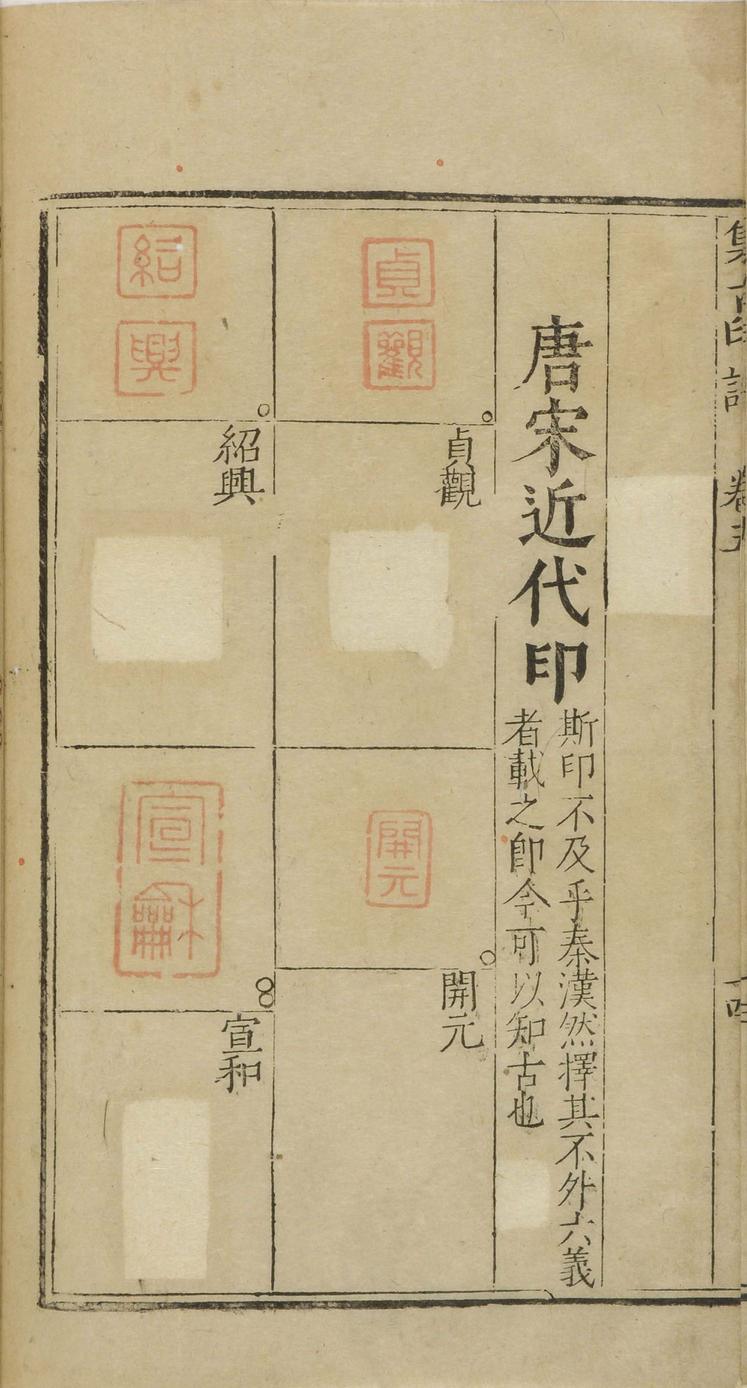 集古印譜 卷五
唐宋近代印
斯印不及乎秦漢然擇其不外六義
者載之即今可以知古也
貞觀
貞觀
開元
開元
紹興
紹興
宣龢
宣和